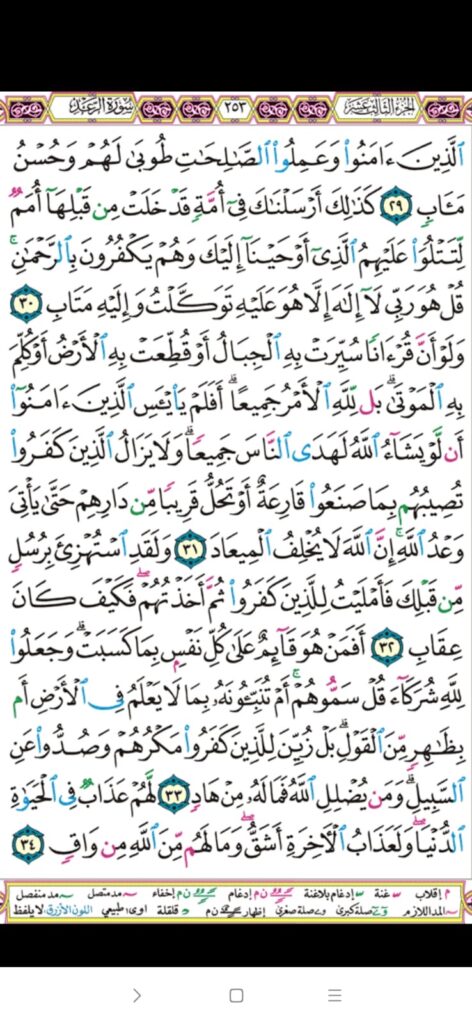 سورة الرعد ٢٥٣ الجزء الثالث عشر
ٱلَّذِينَ ءَامَنُوا۟ وَعَمِلُوا۟ ٱلصَّـٰلِحَـٰتِ طُوبَىٰ لَهُمْ وَحُسْنُ
مَـَٔابٍ ٢٩ كَذَٰلِكَ أَرْسَلْنَـٰكَ فِىٓ أُمَّةٍ قَدْ خَلَتْ مِن قَبْلِهَآ أُمَمٌ
لِّتَتْلُوَا۟ عَلَيْهِمُ ٱلَّذِىٓ أَوْحَيْنَآ إِلَيْكَ وَهُمْ يَكْفُرُونَ بِٱلرَّحْمَـٰنِ ۚ
قُلْ هُوَ رَبِّى لَآ إِلَـٰهَ إِلَّا هُوَ عَلَيْهِ تَوَكَّلْتُ وَإِلَيْهِ مَتَابِ ٣٠
وَلَوْ أَنَّ قُرْءَانًا سُيِّرَتْ بِهِ ٱلْجِبَالُ أَوْ قُطِّعَتْ بِهِ ٱلْأَرْضُ أَوْ كُلِّمَ
بِهِ ٱلْمَوْتَىٰ ۗ بَل لِّلَّهِ ٱلْأَمْرُ جَمِيعًا ۗ أَفَلَمْ يَا۟يْـَٔسِ ٱلَّذِينَ ءَامَنُوٓا۟
أَن لَّوْ يَشَآءُ ٱللَّهُ لَهَدَى ٱلنَّاسَ جَمِيعًا ۗ وَلَا يَزَالُ ٱلَّذِينَ كَفَرُوا۟
تُصِيبُهُم بِمَا صَنَعُوا۟ قَارِعَةٌ أَوْ تَحُلُّ قَرِيبًا مِّن دَارِهِمْ حَتَّىٰ يَأْتِىَ
وَعْدُ ٱللَّهِ ۚ إِنَّ ٱللَّهَ لَا يُخْلِفُ ٱلْمِيعَادَ ٣١ وَلَقَدِ ٱسْتُهْزِئَ بِرُسُلٍ
مِّن قَبْلِكَ فَأَمْلَيْتُ لِلَّذِينَ كَفَرُوا۟ ثُمَّ أَخَذْتُهُمْ ۖ فَكَيْفَ كَانَ
عِقَابِ ٣٢ أَفَمَنْ هُوَ قَآئِمٌ عَلَىٰ كُلِّ نَفْسٍۭ بِمَا كَسَبَتْ ۗ وَجَعَلُوا۟
لِلَّهِ شُرَكَآءَ قُلْ سَمُّوهُمْ ۚ أَمْ تُنَبِّـُٔونَهُۥ بِمَا لَا يَعْلَمُ فِى ٱلْأَرْضِ أَم
بِظَـٰهِرٍ مِّنَ ٱلْقَوْلِ ۗ بَلْ زُيِّنَ لِلَّذِينَ كَفَرُوا۟ مَكْرُهُمْ وَصُدُّوا۟ عَنِ
ٱلسَّبِيلِ ۗ وَمَن يُضْلِلِ ٱللَّهُ فَمَا لَهُۥ مِنْ هَادٍ ٣٣ لَّهُمْ عَذَابٌ فِى ٱلْحَيَوٰةِ
ٱلدُّنْيَا ۖ وَلَعَذَابُ ٱلْـَٔاخِرَةِ أَشَقُّ ۖ وَمَا لَهُم مِّنَ ٱللَّهِ مِن وَاقٍ ٣٤
م إقلاب غنة إدغام بلا غنة ن م إدغام ن م إخفاء مد متصل مد منفصل
المد اللازم صلة كبرى صلة صغرى إظهار ن م قلقلة اوى طبيعي اللون الأزرق لا يلفظ